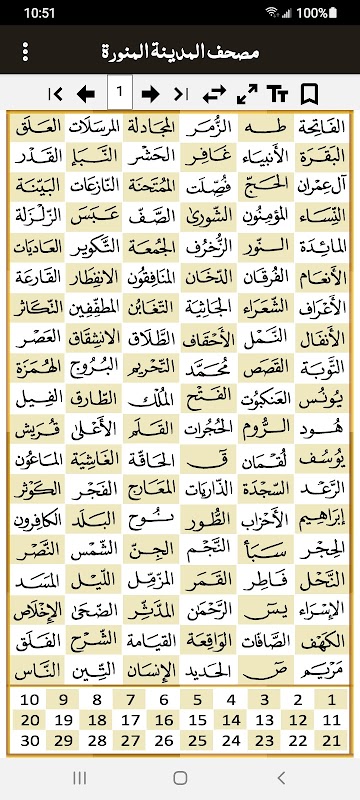 10:51 100%
مصحف المدينة المنورة
1
الفَاتِحَة طه الزُّمَر المجَادلة المرسَلَات العَلَق
البَقَرَة الأنبيَاء غَافِر الحَشْر النَّبَإ القَدْر
آل عِمْرَان الحَجّ فُصِّلَت المُمْتَحَنَة النّازعَات البَيِّنَة
النِّسَاء المؤمِنُون الشّورىٰ الصَّفّ عَبَسَ الزَّلْزَلة
المَائدة النُّور الزُّخرُف الجُمُعَة التَّكْوير العَاديَات
الأنعَام الفُرقَان الدُّخَان المنَافِقُون الانفِطَار القَارعَة
الأَعْرَاف الشُّعَراء الجَاثيَة التَّغَابُن المطَفِّفِين التَّكاثُر
الأَنْفَال النَّمْل الأحْقَاف الطَّلَاق الانشقَاق العَصْر
التَّوبَة القَصَص مُحَمَّد التَّحْريم البُرُوج الهُمَزَة
يُونُس العَنكبُوت الفَتْح المُلْك الطّارق الفِيل
هُود الرُّوم الحُجُرَات القَلَم الأَعْلىٰ قُرَيش
يُوسُف لُقْمَان قٓ الحَاقَّة الغَاشِيَة الماعُون
الرَّعْد السَّجْدَة الذّاريَات المعَارج الفَجْر الكَوْثر
إبراهِيم الأَحْزَاب الطُّور نُوح البَلَد الكافِرون
الحِجْر سَبَأ النَّجْم الجِنّ الشَّمْس النَّصْر
النَّحْل فَاطِر القَمَر المزَّمِّل اللَّيْل المَسَد
الإسْرَاء يسٓ الرَّحمٰن المدَّثِّر الضّحىٰ الإخْلَاص
الكَهْف الصَّافّات الوَاقِعَة القِيَامَة الشَّرْح الفَلَق
مَريَم صٓ الحَديد الإنسَان التِّين النّاس
10 9 8 7 6 5 4 3 2 1
20 19 18 17 16 15 14 13 12 11
30 29 28 27 26 25 24 23 22 21